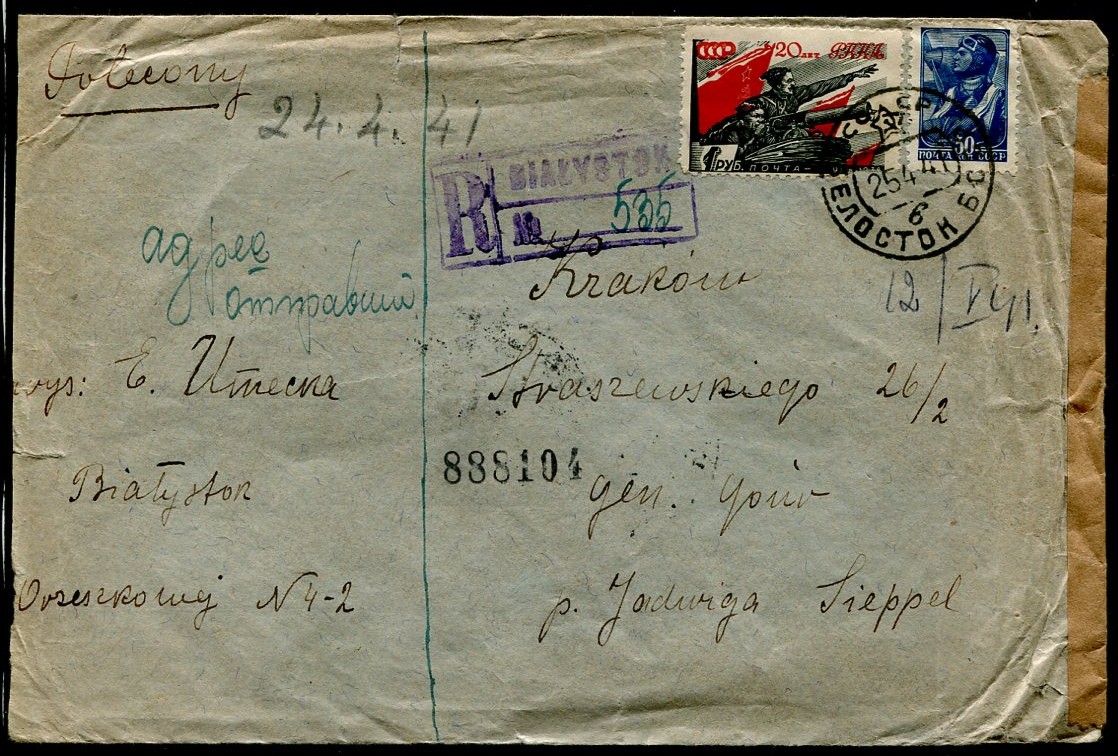 Polecony
24.4.41
СССР 20 лет РККА
1 РУБ. ПОЧТА
50
ПОЧТА СССР
СССР
25441
-6
БЕЛОСТОК БС
R BIAŁYSTOK
№ 535
адрес
отправит
Kraków
12/VI 41.
wys: E. Umecka
Straszewskiego 26/2
888104
Białystok
gen. gouv
Orzeszkowej N 4-2
p. Jadwiga Sieppel